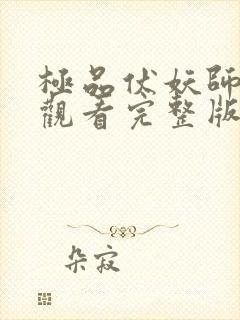 極品伏妖師
觀看完整版
朵寂